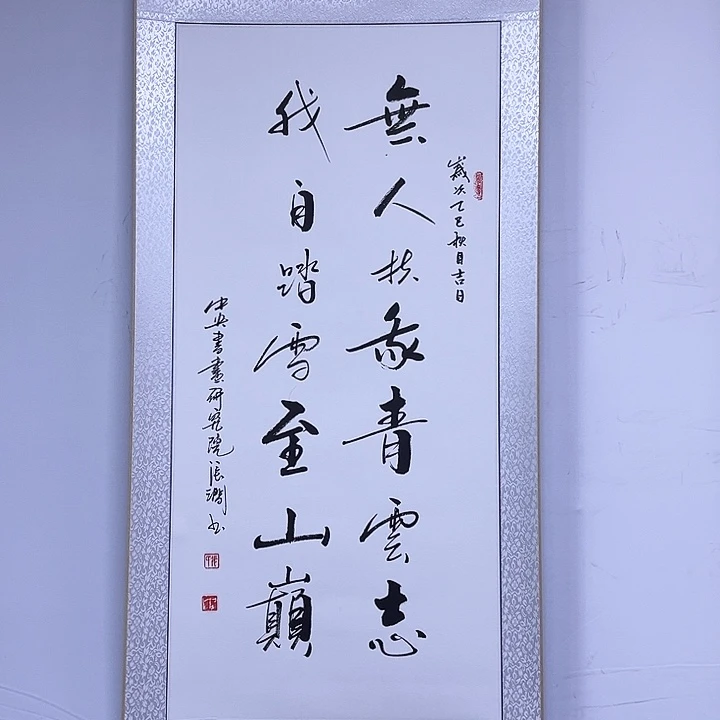 歲次乙巳秋月吉日
無人扶我青雲志
我自踏雪至山巔
中央書畫研究院張书